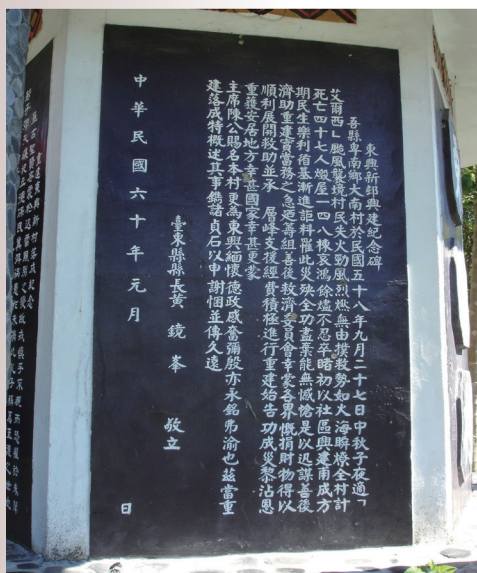 東興新邨興建紀念碑
吾縣卑南鄉大南村於民國五十八年九月二十七日中秋子夜適「
艾爾西」颱風襲境村民失火勁風烈燃無由撲救勢如火海瞬燎全村計
死亡四十七人燬屋一四八棟哀鴻餘燼不忍卒睹初以社區興建甫成方
期民生樂利佰基漸進詎料罹此災殃全功盡棄能無憾愴是以迅謀善後
濟助重建實當務之急迺籌組善後救濟委員會幸蒙各界慨捐財物得以
順利展開救助並承 層峰支援經費積極進行重建始告功成災黎沾恩
重獲安居地方幸甚國家幸甚更蒙
主席陳公賜名本村更為東興緬懷德政感奮彌殷亦永銘弗渝也茲當重
建落成特概述其事鐫諸貞石以申謝悃並傳久遠
臺東縣縣長黃鏡峯 敬立
中華民國六十年元月 日
重建東興新村落成紀念